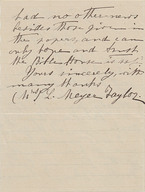 had no other news
besides those given in
the papers, and can
only hope and trust
the Bible House is safe.
Yours sincerely, with
many thanks
(Mrs) L. Meyer Taylor.